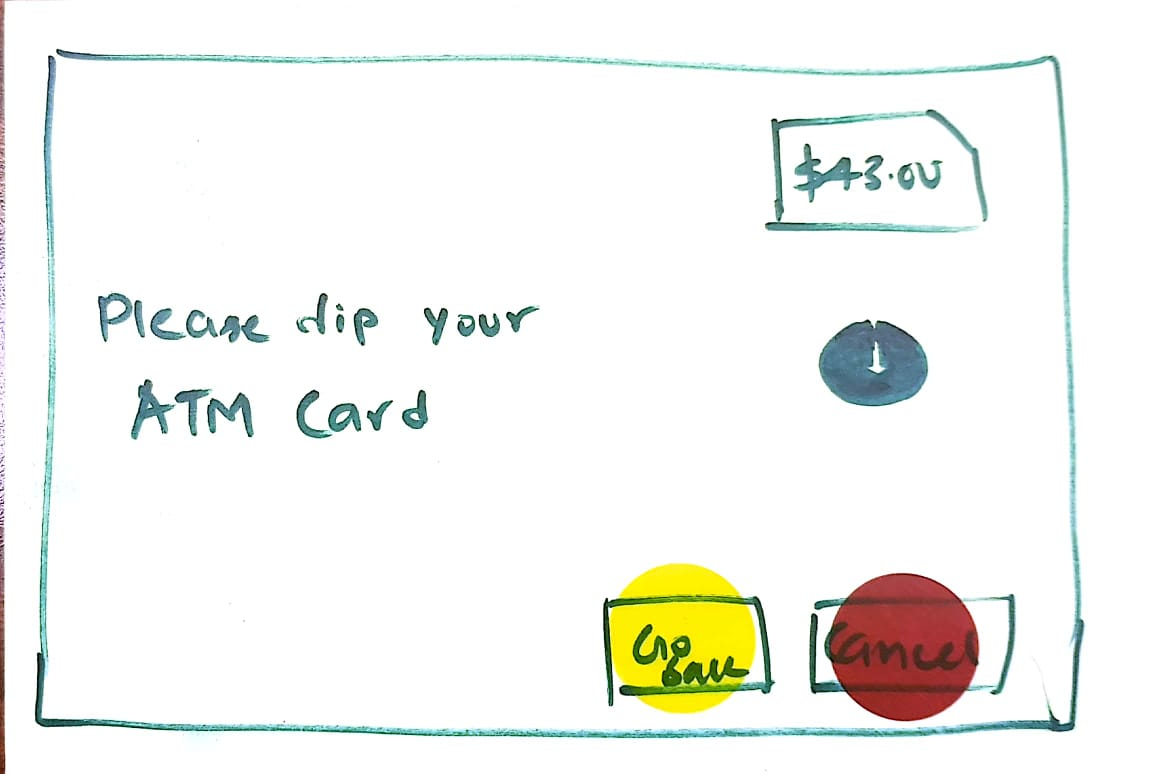 $43.00
Please dip your
ATM Card
Go
Back
Cancel